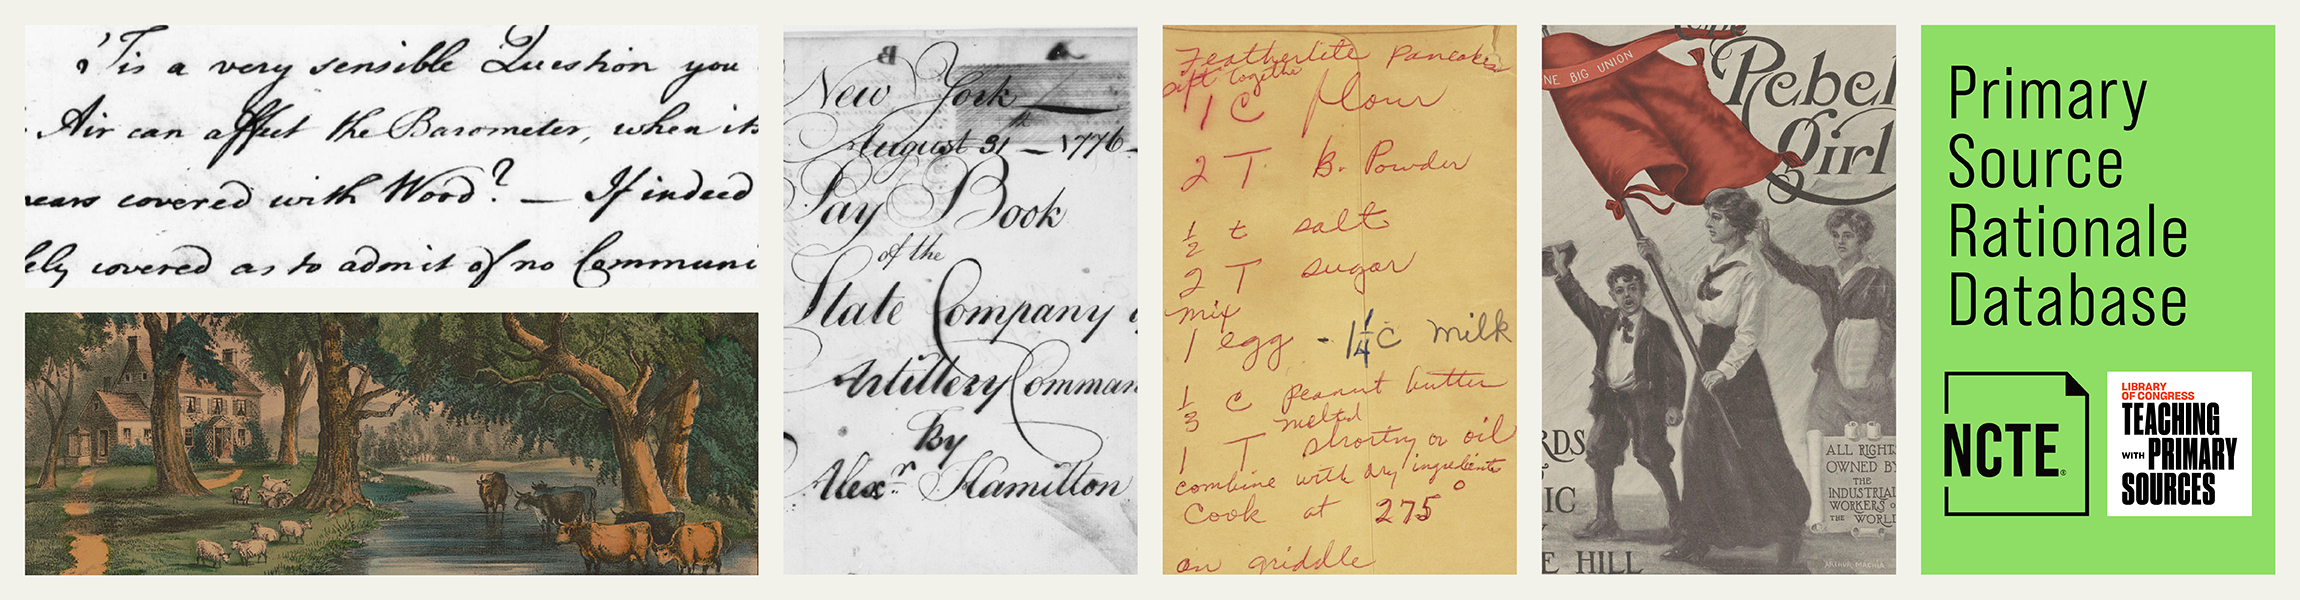 'Tis a very sensible Question you
Air can affect the Barometer, when its
ears covered with Wood? — If indeed
ely covered as to admit of no Communi
New York
August 31st — 1776 —
Pay Book
of the
State Company o
Artillery Comman
By
Alexr. Hamilton
Featherlite Pancakes
sift together
1 C flour
2 T B. Powder
1/2 t salt
2 T sugar
mix
1 egg - 1 1/4 C milk
1/3 C peanut butter
melted
1 T shortng or oil
combine with dry ingredients
Cook at 275°
on griddle
NE BIG UNION
Rebel
Girl
RDS
IC
Y
E HILL
ALL RIGHTS
OWNED BY
THE
INDUSTRIAL
WORKERS O
THE WORLD
ARTHUR MACHIA
Primary
Source
Rationale
Database
NCTE®
LIBRARY
OF CONGRESS
TEACHING
WITH PRIMARY
SOURCES